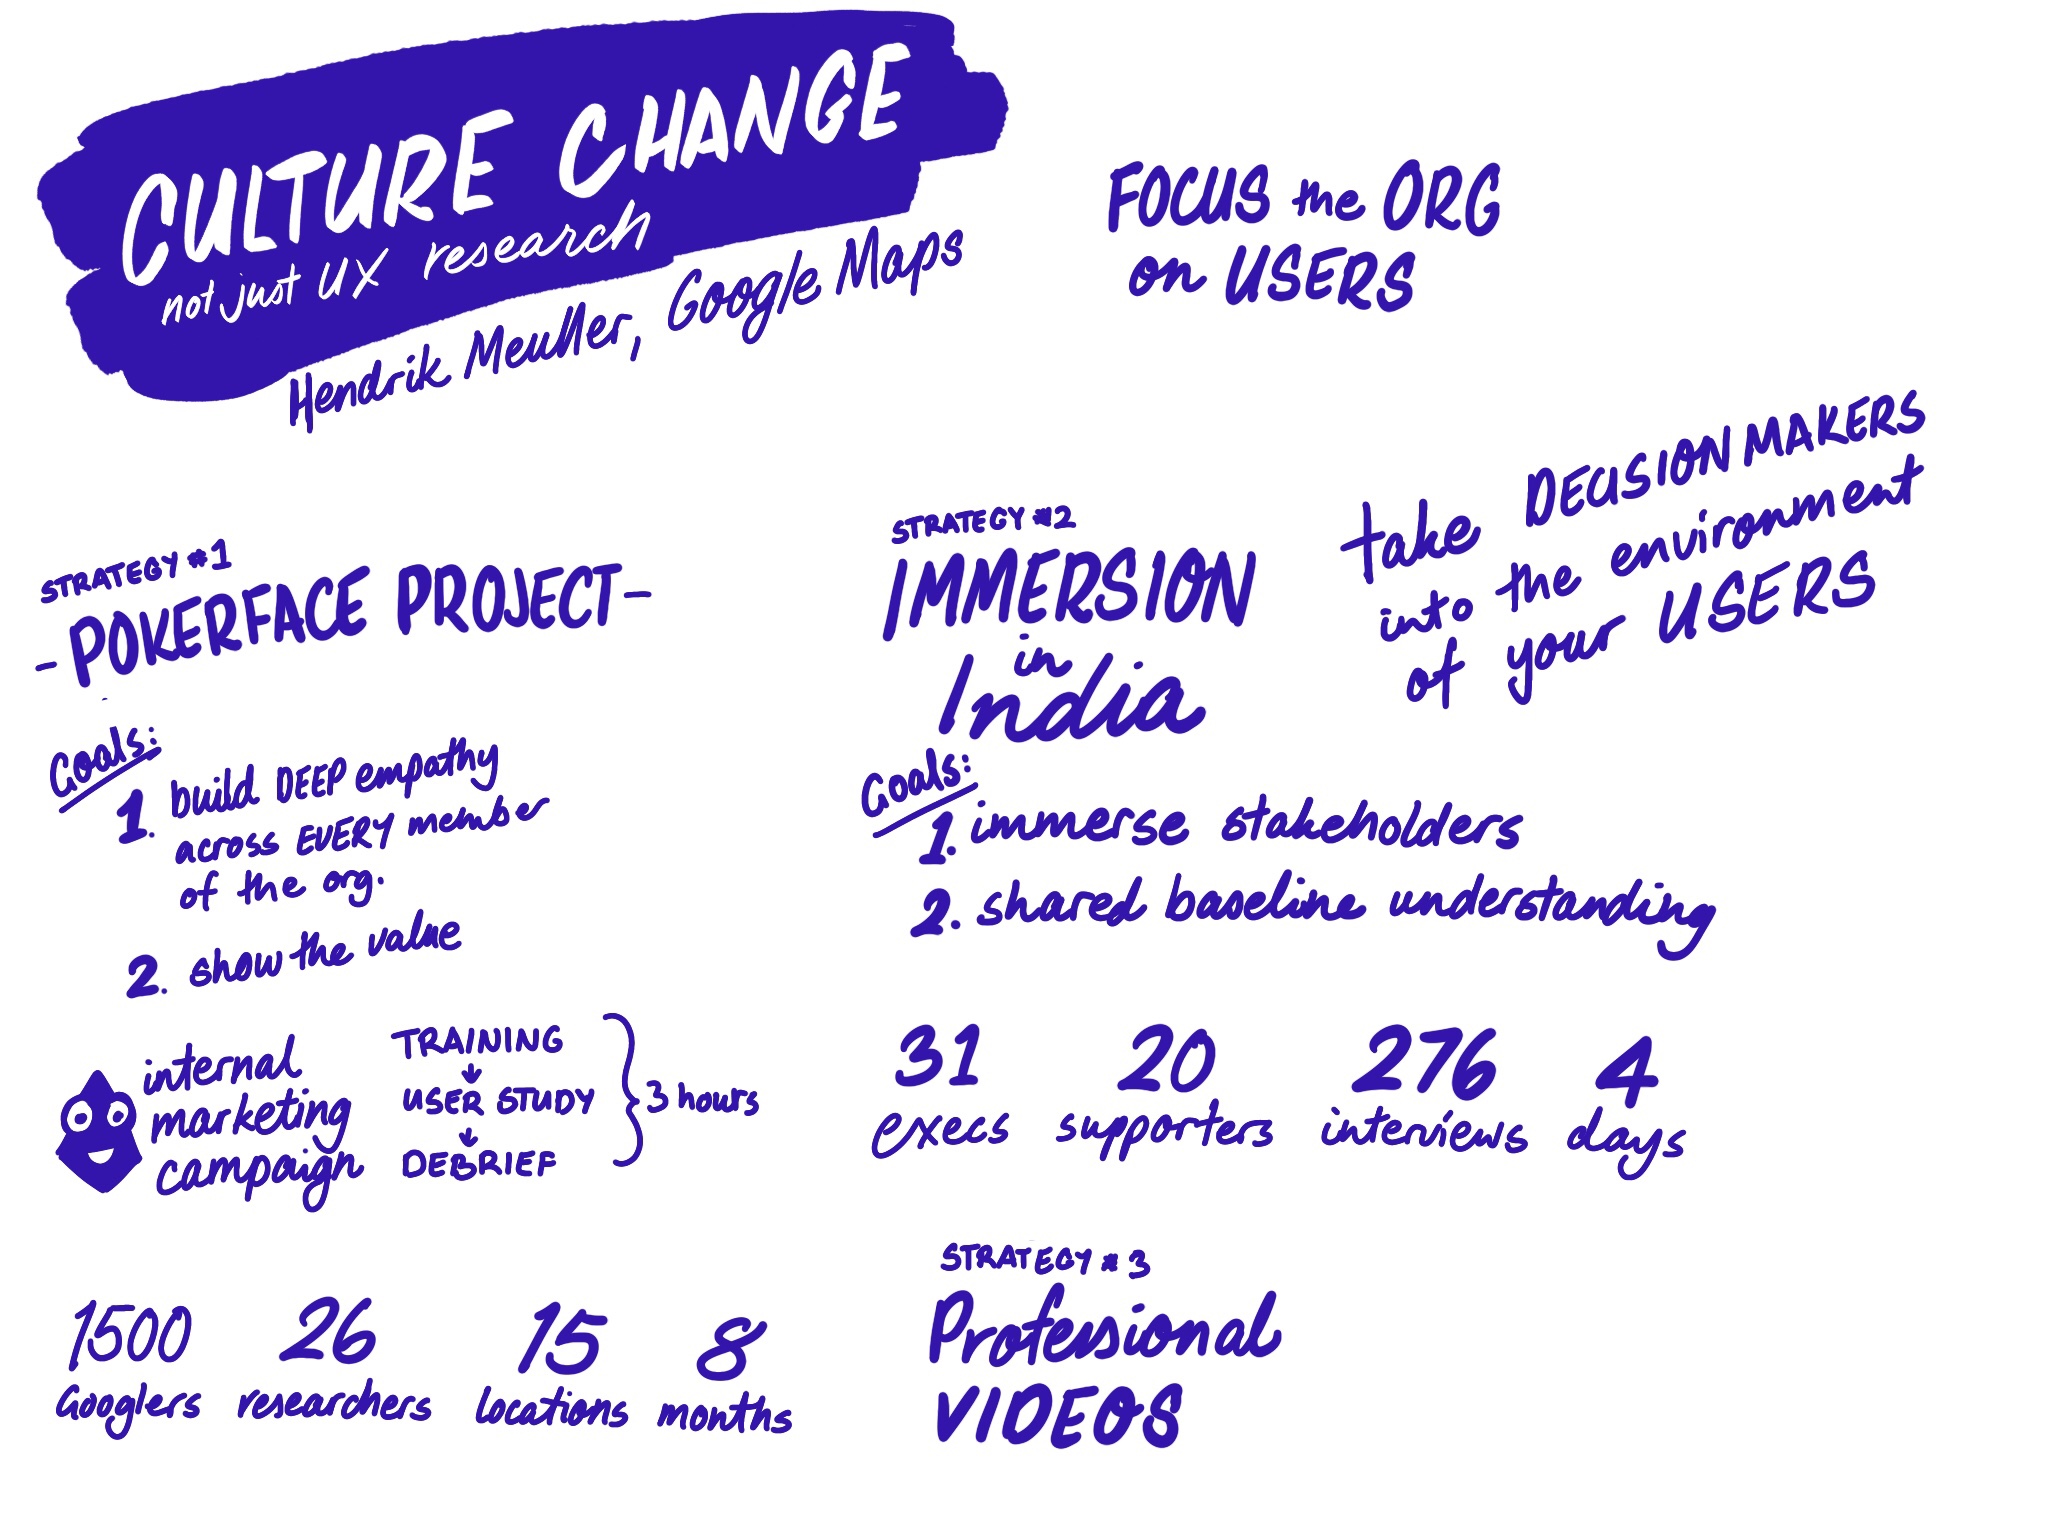 CULTURE CHANGE
not just UX research
Hendrik Meuller, Google Maps
FOCUS the ORG
on USERS
STRATEGY #1
- POKERFACE PROJECT -
Goals:
1. build DEEP empathy
across EVERY member
of the org.
2. show the value
internal
marketing
campaign
TRAINING
↓
USER STUDY
↓
DEBRIEF
3 hours
1500
Googlers
26
researchers
15
locations
8
months
STRATEGY #2
IMMERSION
in
India
take DECISION MAKERS
into the environment
of your USERS
Goals:
1. immerse stakeholders
2. shared baseline understanding
31
execs
20
supporters
276
interviews
4
days
STRATEGY #3
Professional
VIDEOS